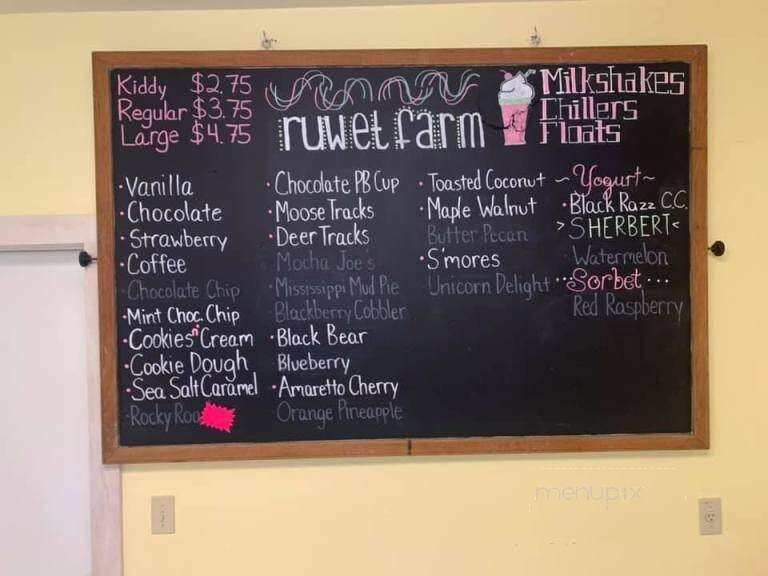 Kiddy $2.75
Regular $3.75
Large $4.75
ruwet farm
Milkshakes
Chillers
Floats
·Vanilla
·Chocolate
·Strawberry
·Coffee
·Chocolate Chip
·Mint Choc. Chip
·Cookies n' Cream
·Cookie Dough
·Sea Salt Caramel
·Rocky Roa
·Chocolate PB Cup
·Moose Tracks
·Deer Tracks
Mocha Joe's
·Mississippi Mud Pie
Blackberry Cobbler
·Black Bear
Blueberry
·Amaretto Cherry
Orange Pineapple
·Toasted Coconut
·Maple Walnut
Butter Pecan
·S'mores
Unicorn Delight
~Yogurt~
·Black Razz C.C.
>SHERBERT<
Watermelon
···Sorbet···
Red Raspberry
menupix